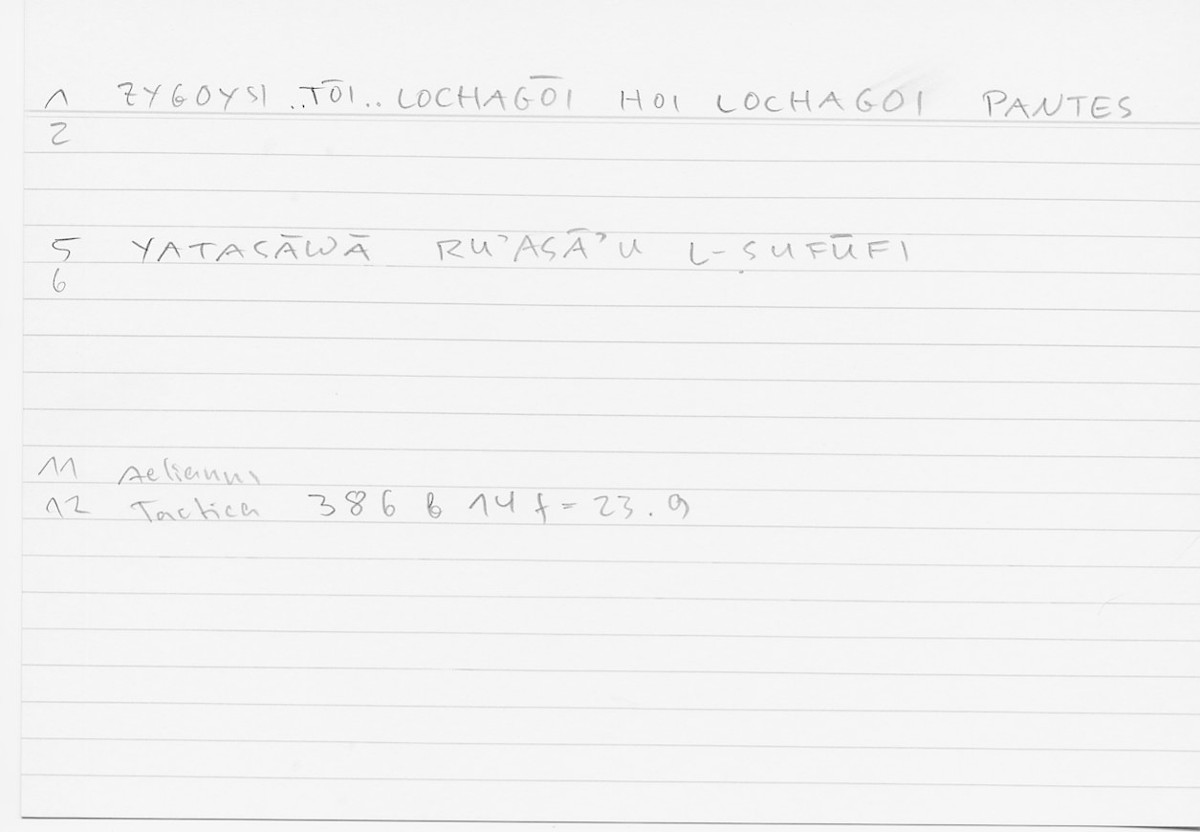 1 ZYGOYSI ..TŌI.. LOCHAGŌI HOI LOCHAGOI PANTES
2
5 YATASĀWĀ RU’ASĀ’U L-ṢUFŪFI
6
11 Aelianus
12 Tactica 386 b 14 f = 23.9